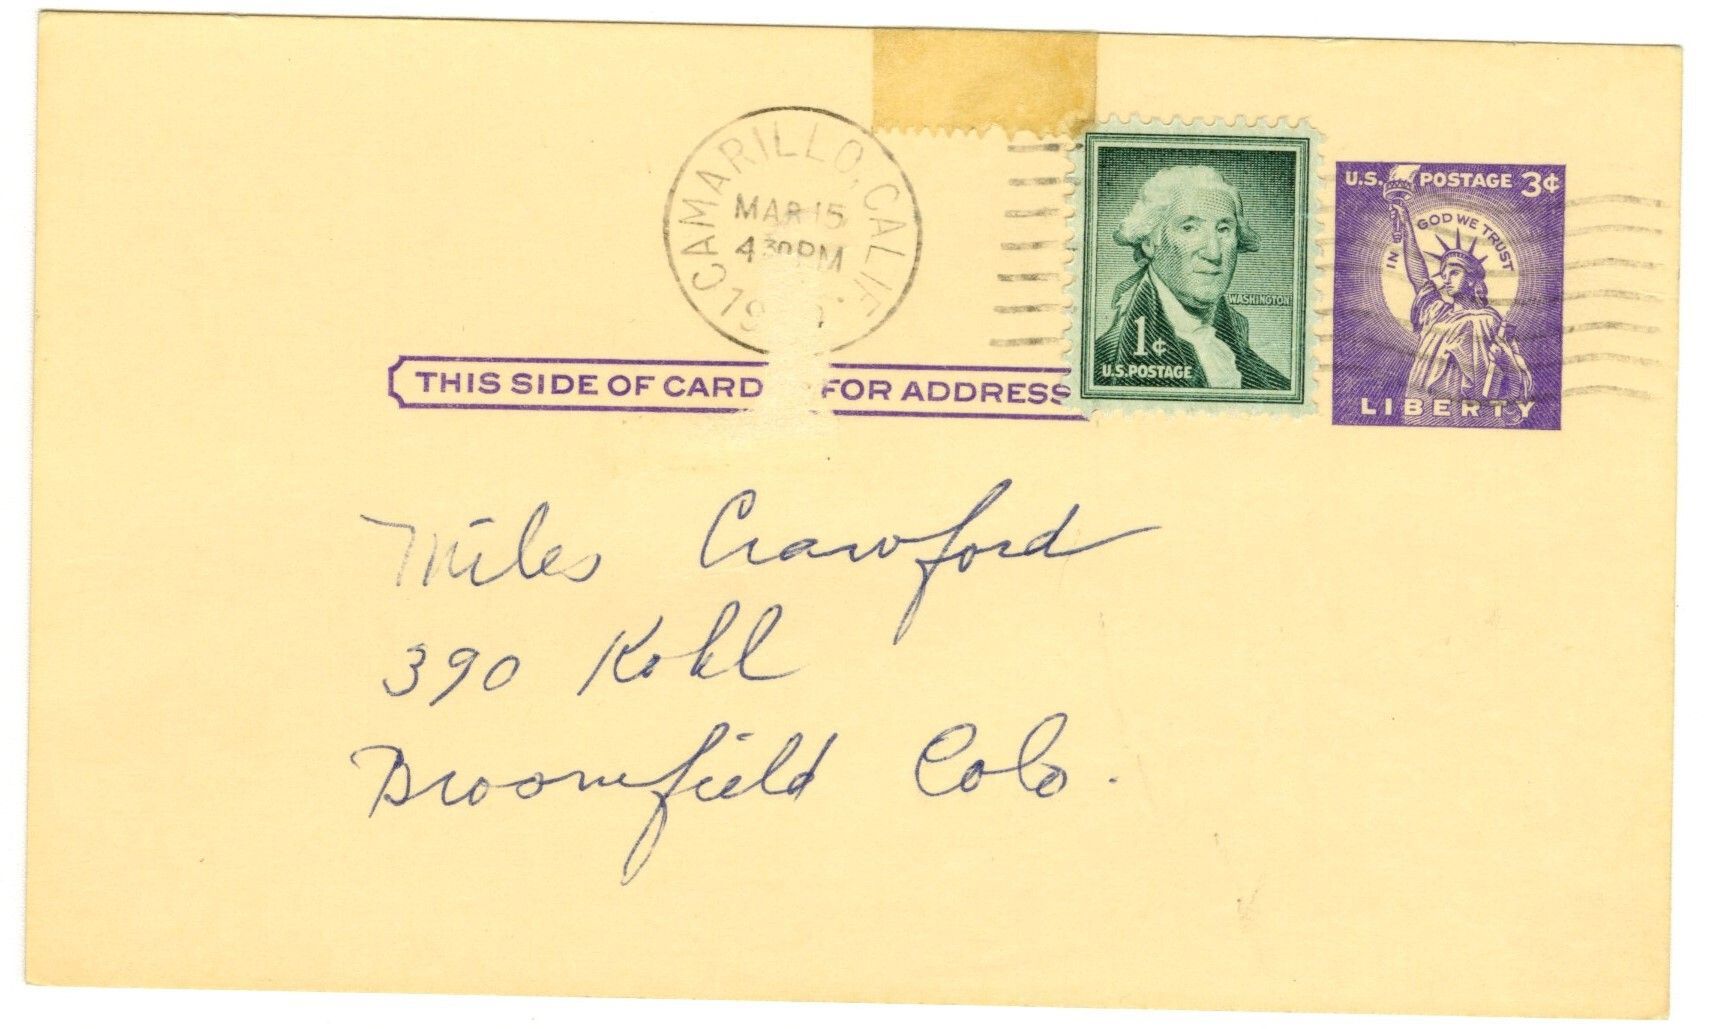 CAMARILLO, CALIF.
MAR 15
4 30 PM
U.S. POSTAGE 3¢
IN GOD WE TRUST
LIBERTY
WASHINGTON
1¢
U.S. POSTAGE
THIS SIDE OF CARD FOR ADDRESS
Miles Crawford
390 Kohl
Broomfield Colo.